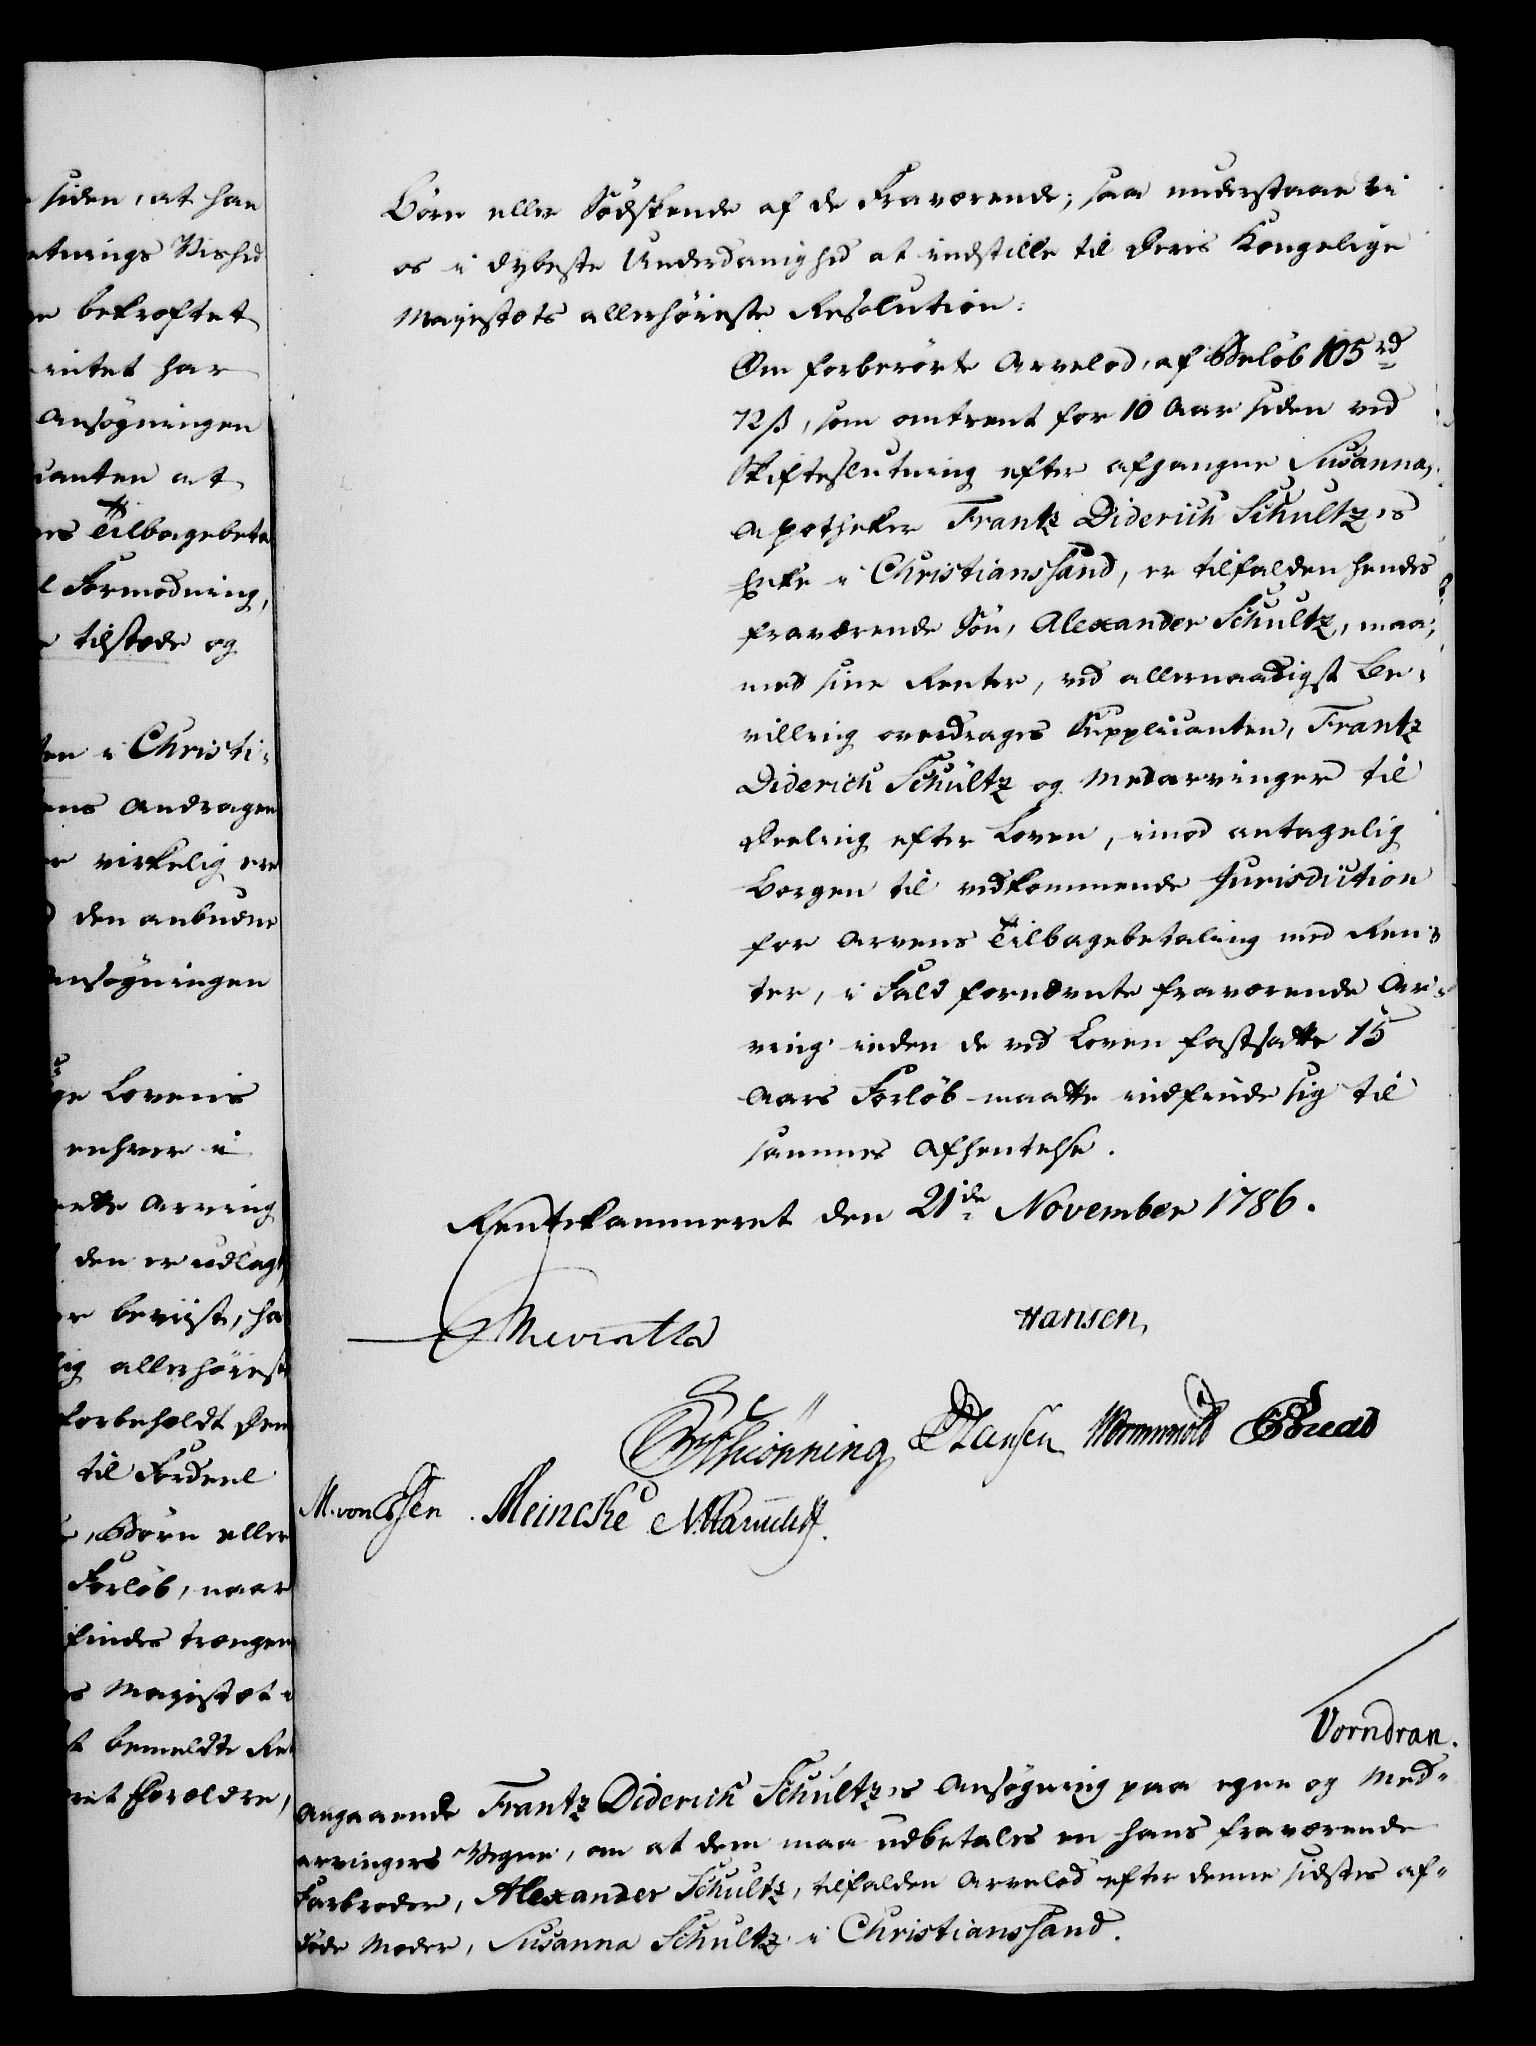 siden, at han
etnings Vished
bekræftet
intet har
Ansøgningen
canten at
Tilbagebeta
Formodning,
tilstæde og
i Christi-
Andragen
virkelig ere
den anbudne
Ansøgningen
Lovens
enhver i
Arving
den er udlagt
beviist, ha
allerhøiest
forbeholdt Dem
til Fordeel
, Børn eller
Forløb, naar
findes trængen
Majestæt
bemeldte
Forældre,
Børn eller Södskende af de Fraværende; saa understaae vi
os i dybeste Underdanighed at indstille til Deres Kongelige
Majestæts allerhöieste Resolution:
Om forberörte Arvelod, af Belöb 105 rd
72 ß, som omtrent for 10 Aar siden ved
Skifteslutning efter afgangne Susanna,
Apotheker Frantz Diderich Schultz's
Enke i Christianssand, er tilfalden hendes
fraværende Sön, Alexander Schultz, maa,
med sine Renter, ved allernaadigst Be-
villing overdrages Supplicanten, Frantz
Diderich Schültz og Medarvinger til
Deeling efter Loven, imod antagelig
Borgen til vedkommende Jurisdiction
for Arvens Tilbagebetaling med Ren-
ter, i Fald fornævnte fraværende Ar-
ving inden de ved Loven fastsatte 15
Aars Forlöb maatte indfinde sig til
sammes Afhentelse.
Rentekammeret den 21de November 1786.
Hansen,
Schiönning Hansen Wormskiold
M. von Essen. Meincke
Vorndran.
Angaaende Frantz Diderich Schultz's Ansøgning paa egne og Med-
arvingers Vegne, om at dem maa udbetales en hans fraværende
Farbroder, Alexander Schultz, tilfalden Arvelod efter denne sidstes af-
døde Moder, Susanna Schultz i Christianssand.